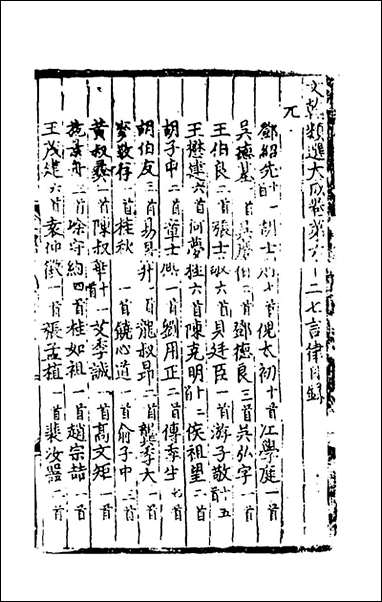 文翰類選大成卷第六十二七言律目錄
元
鄧紹先十一首 胡士 七首 倪太初十首 江學庭一首
吳德基 首 吳 二首 鄧德良三首 吳弘宇一首
王伯良二首 張士 六首 貝廷臣一首 游子敬十五首
王懋建六首 何夢桂六首 陳克明十二首 侯祖望二首
胡子中二首 董士 一首 劉用正二首 傅幸生七首
胡伯友三首 易 首 龍叔昂二首 龔季大一首
麥敬存一首 桂秋一首 饒心道一首 俞子中二首
黃叔彝一首 陳叔華十一首 艾季誠一首 高文矩一首
二首 徐守約四首 桂如祖一首 趙宗喆一首
王茂建六首 袁仲徵一首 張孟植一首 裴汝器一首